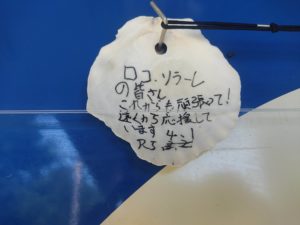 ロコ・ソラーレ
の皆さん
これからも頑張って!
遠くから応援して
います 4.1
R5